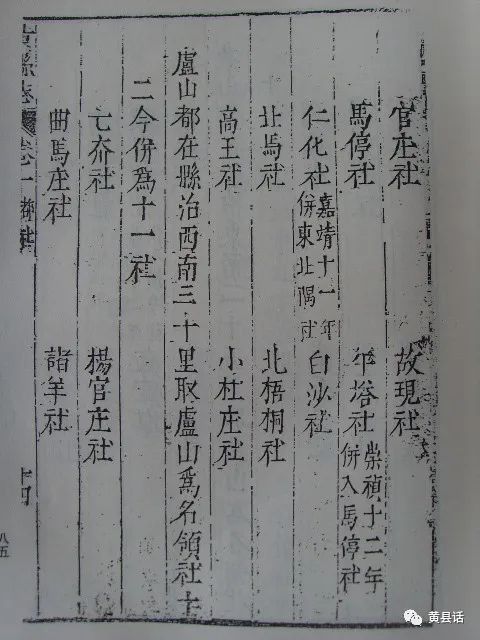 官庄社 故現社
馬停社 平塔社 崇禎十二年
併入馬停社
仁化社 嘉靖十一年
併東北隅社 白沙社
北馬社 北梧桐社
高王社 小杜庄社
盧山都在縣治西南三十里取盧山爲名領社十
二今併爲十一社
七夼社 楊官庄社
曲馬庄社 諸羊社
縣志 卷一 十四
八五
黄县话